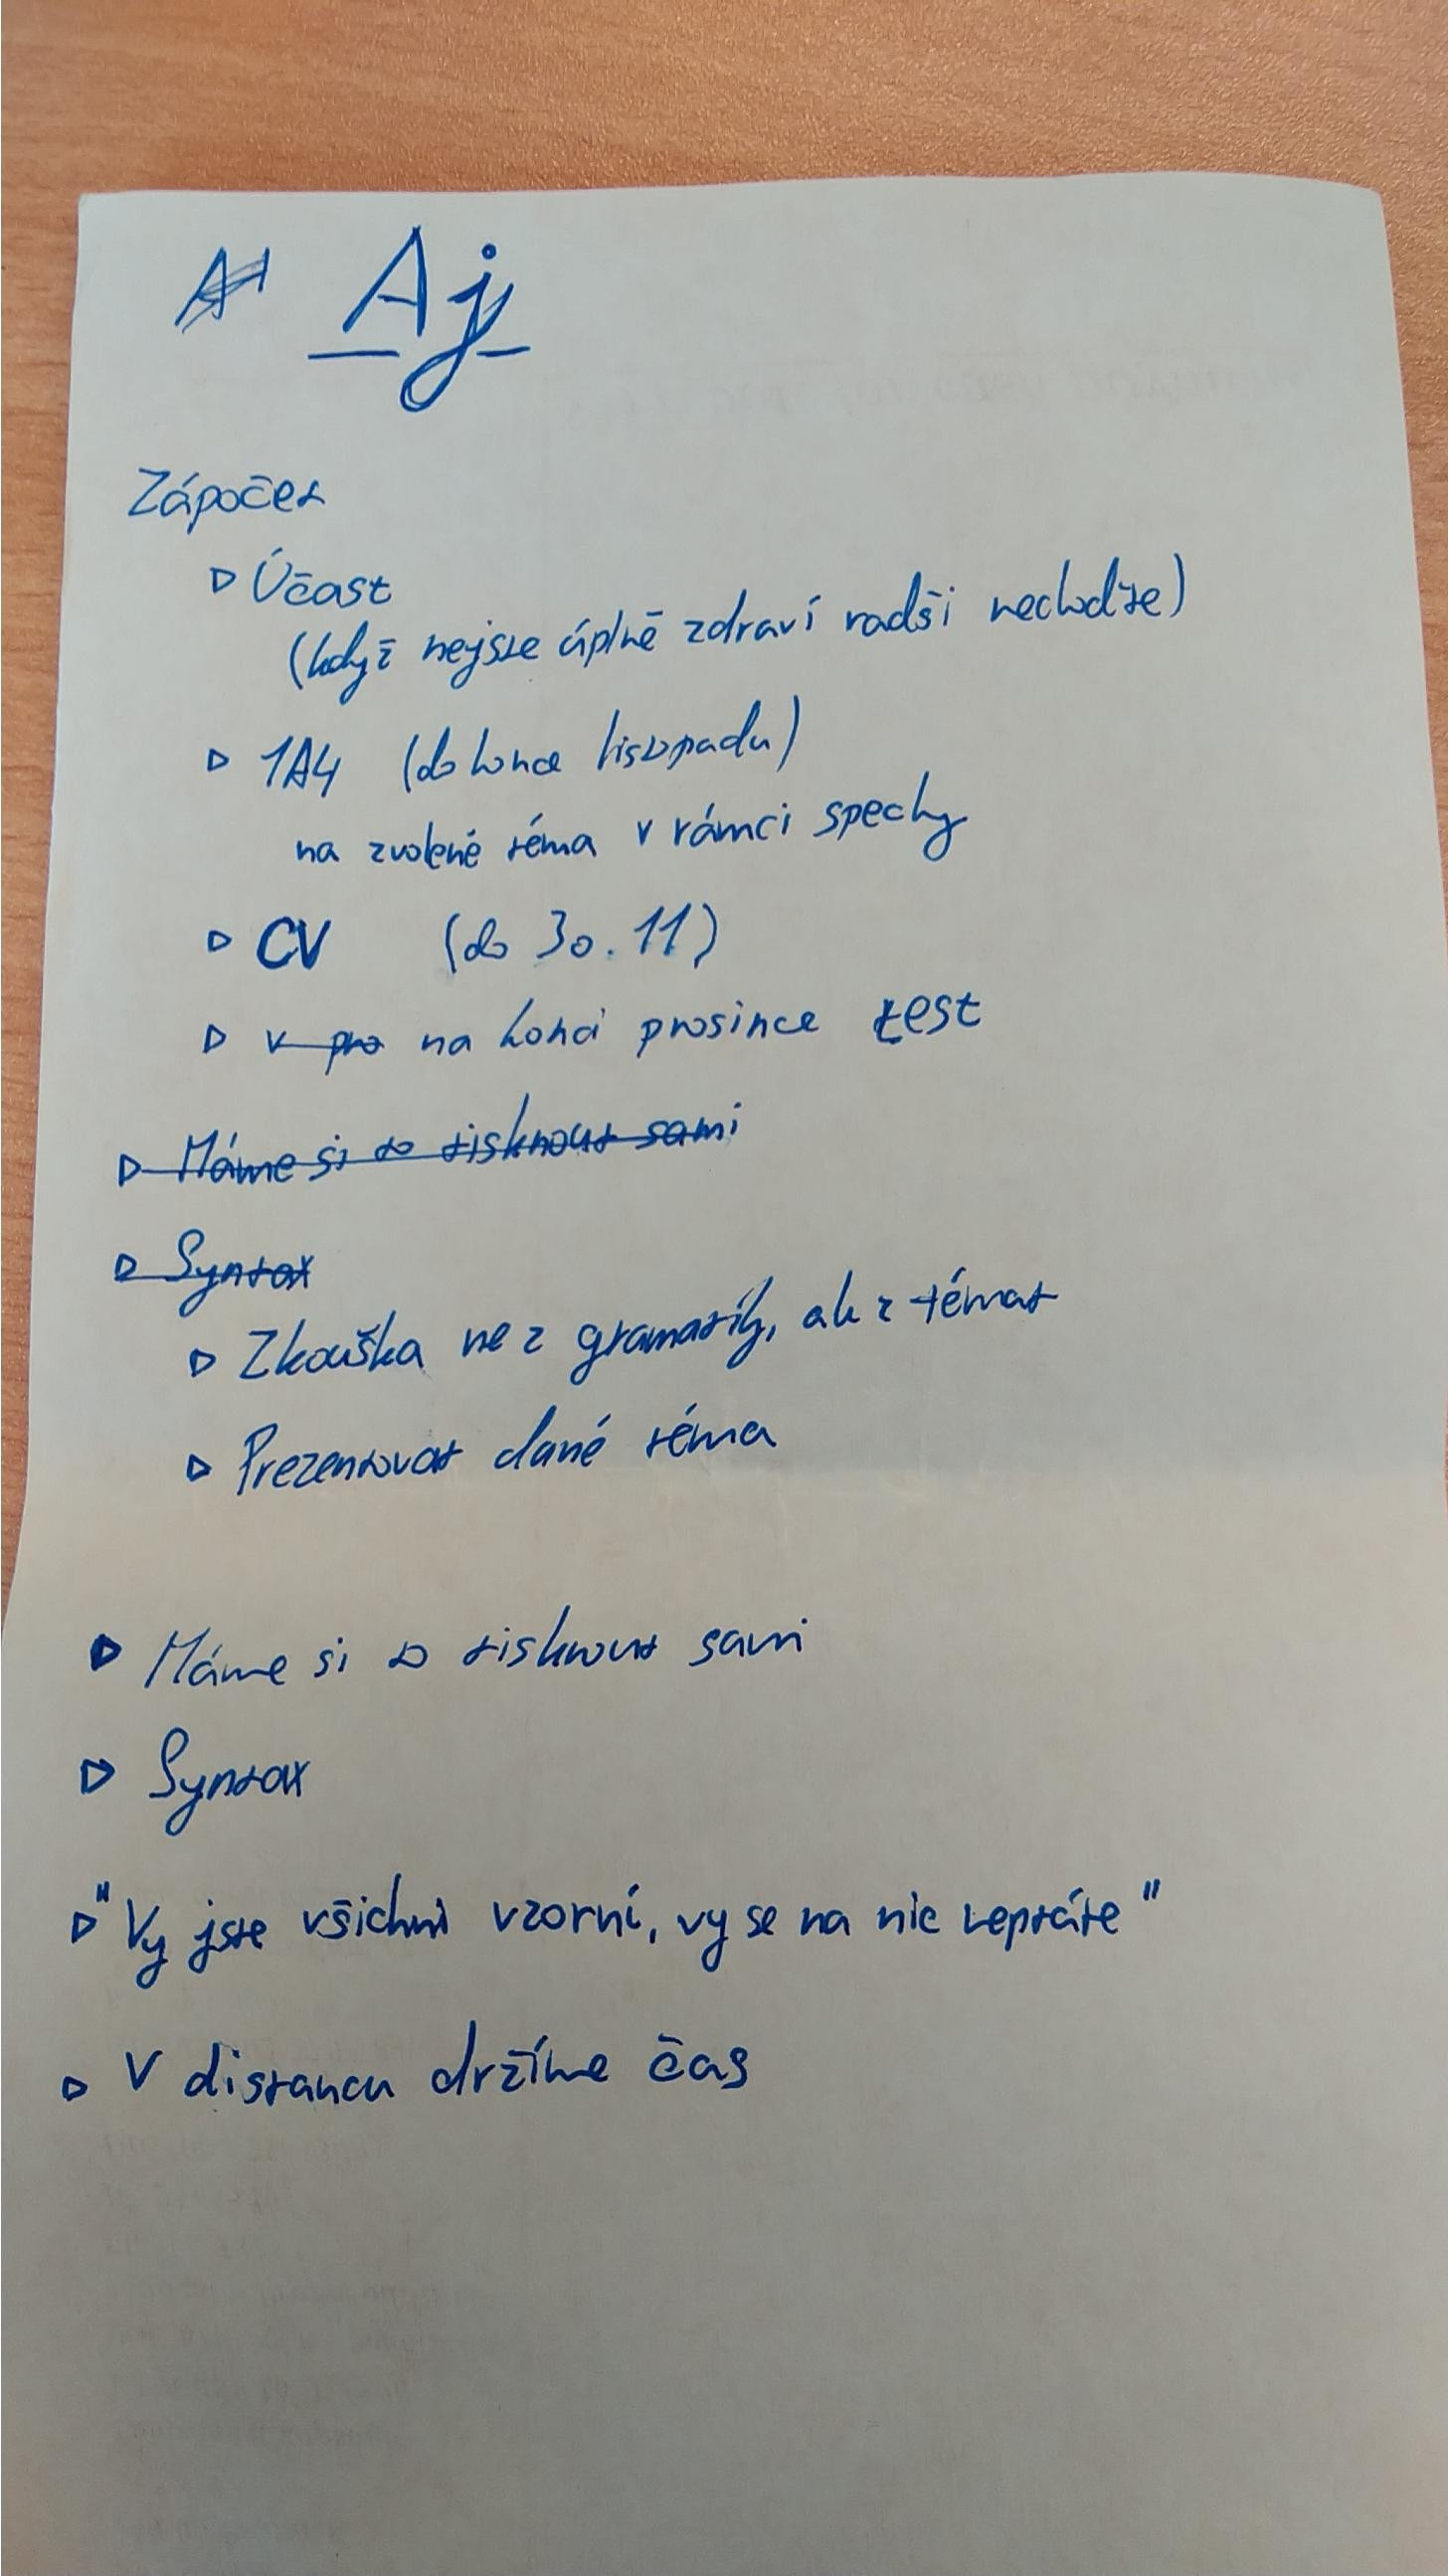 Aj
Zápočet
▷ Účast
(když nejste úplně zdraví radši nechoďte)
▷ 1A4 (do konce listopadu)
na zvolené téma v rámci spechy
▷ CV (do 30.11)
▷ v pro na konci prosince test
▷ Máme si to tisknout sami
▷ Syntax
▷ Zkouška ne z gramatiky, ale z témat
▷ Prezentovat dané téma
▷ Máme si to tisknout sami
▷ Syntax
▷ "Vy jste všichni vzorní, vy se na nic neptáte"
▷ V distancu držíme čas